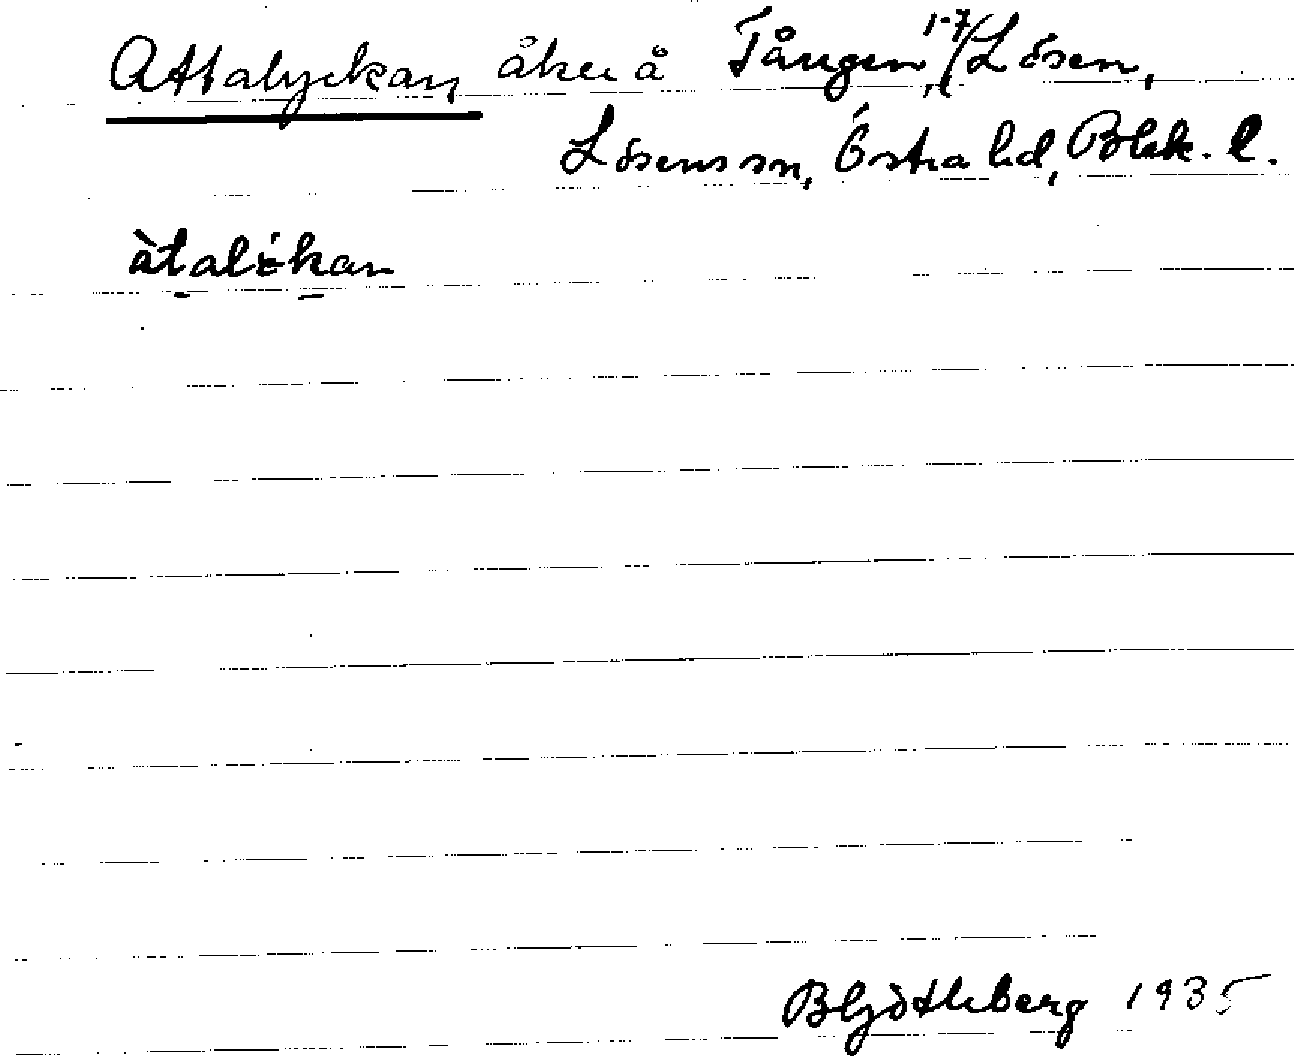 Attalyckan åker å Tången 1-7/ Lösen,
Lösens sn, Östra hd, Blek. l.
àtalikan
1935